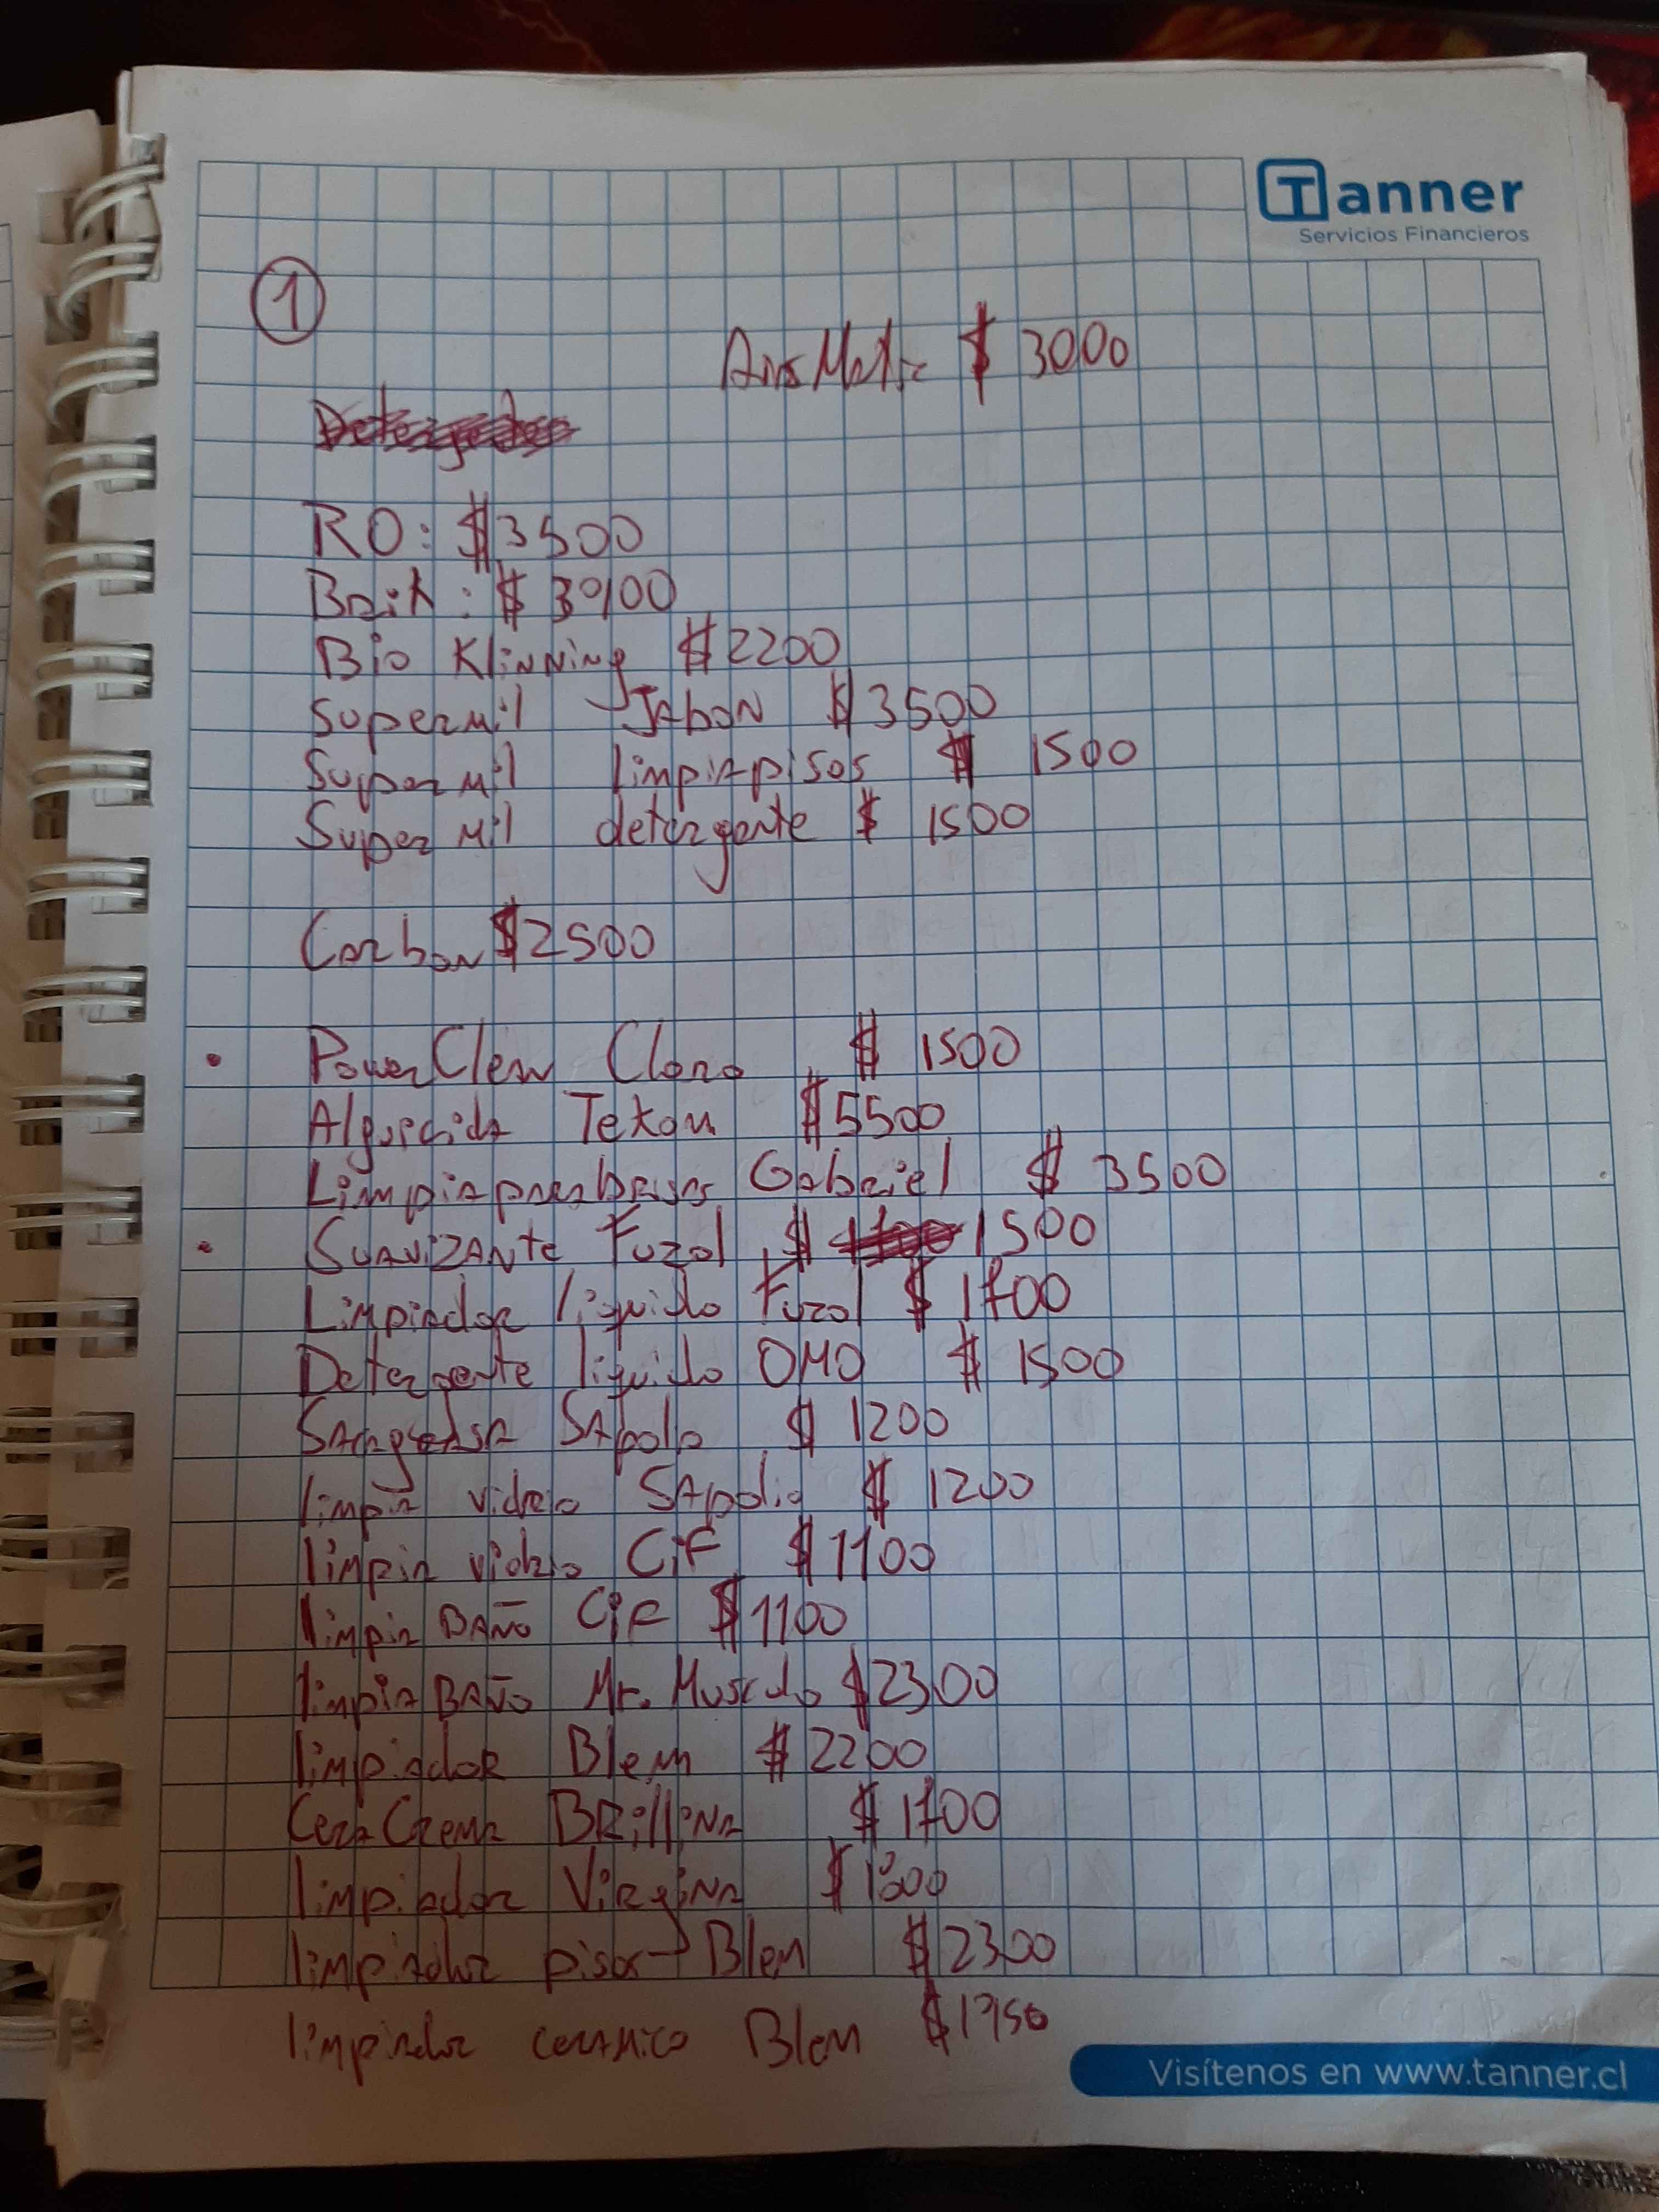 Tanner
Servicios Financieros
1
$ 3000
RO: $3500
Brik: $ 3900
Bio Klinning $2200
Supermil Jabon $3500
Supermil limpiapisos $ 1500
Supermil detergente $ 1500
Carbon $2500
• PowerClean Cloro $ 1500
Alguecida Tekom $5500
Limpiaparabrisas Gabriel $ 3500
• Suavizante Fuzol $ 1500
Limpiador liquido Fuzol $ 1700
Detergente liquido OMO $ 1500
Sacagrasa Sapolio $ 1200
limpia vidrio Sapolio $ 1200
limpia vidrio Cif $1100
limpia BAÑO CiF $1100
limpia BAÑO Mr. Musculo $2300
limpiador Blem $2200
Cera Crema BRillina $1700
limpiador Virgina $1800
limpiador pisos Blem $2300
limpiador ceramico Blem $1950
Visítenos en www.tanner.cl